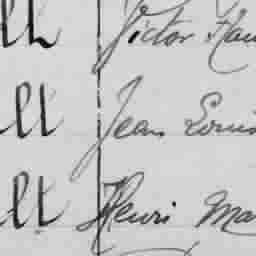 ll Victor
ll Jean Louis
ll Henri Ma